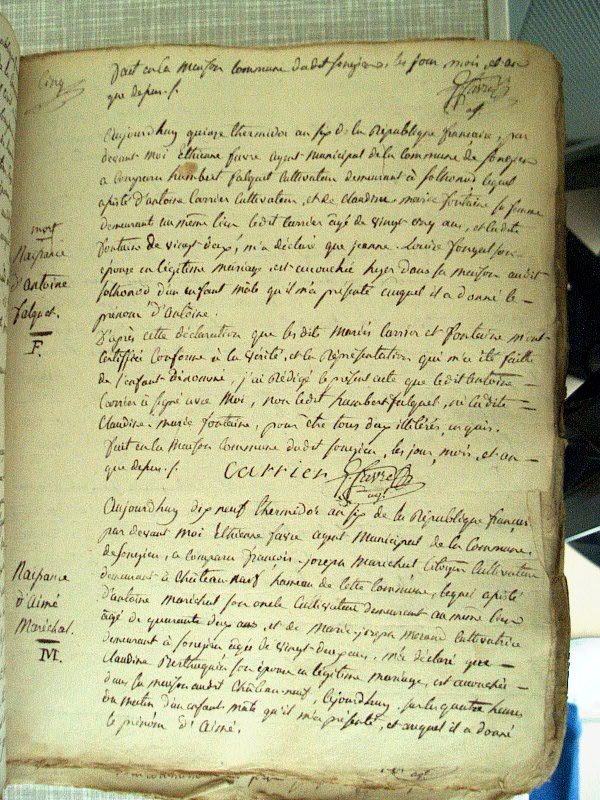 Cinq
fait en la Maison Commune dudit Songieu, les jour, mois, et an
que depuis /.
Favre
agt
mort
Naissance
d'antoine
falquet.
F.
Aujourd'huy quinze thermidor an six de la République française, par
devant moi Ettienne favre agent Municipal de la Commune de Songieu
a comparu humbert falquet Cultivateur demeurant à Solhonod lequel
assisté d'antoine Carrier Cultivateur, et de claudine marie fontaine sa femme
demeurant au même lieu ledit Carrier âgé de vingt cinq ans, et ladite
fontaine de vingt deux, m'a déclaré que jeanne Louise son
épouse en légitime mariage, est accouchée hyer dans sa maison audit
Solhonod d'un enfant mâle qu'il m'a présenté auquel il a donné le
prénom d'antoine.
D'après cette déclaration que lesdits Mariés Carrier et fontaine m'ont
Certiffiée Conforme à la vérité, et la Représentation qui m'a été faitte
de l'enfant dénommé, j'ai Rédigé le présent acte que ledit antoine
Carrier à signé avec Moi, non ledit humbert falquet, ni ladite
Claudine marie fontaine, pour être tous deux illitérés, enquis.
fait en la Maison Commune dudit Songieu, les jour, mois, et an
que depuis /.
Carrier
Favre
agt
Naissance
d'Aimé
Maréchal.
M.
Aujourd'huy dix neuf thermidor an six de la République française
par devant moi Ettienne favre agent Municipal de la Commune
de Songieu, a comparu françois joseph Maréchal Citoyen Cultivateur
demeurant à Château neuf hameau de cette Commune, lequel assisté
d'antoine Maréchal son oncle Cultivateur demeurant au même lieu
âgé de quarante deux ans, et de Marie joseph Morand Cultivatrice
demeurant à Songieu âgée de vingt-deux ans, m'a déclaré que
Claudine son épouse en légitime mariage, est accouchée
dans sa maison audit Château-neuf, cejourd'huy sur les quatre heures
du matin d'un enfant mâle qu'il m'a présenté, et auquel il a donné
le prénom d'Aimé.
agt